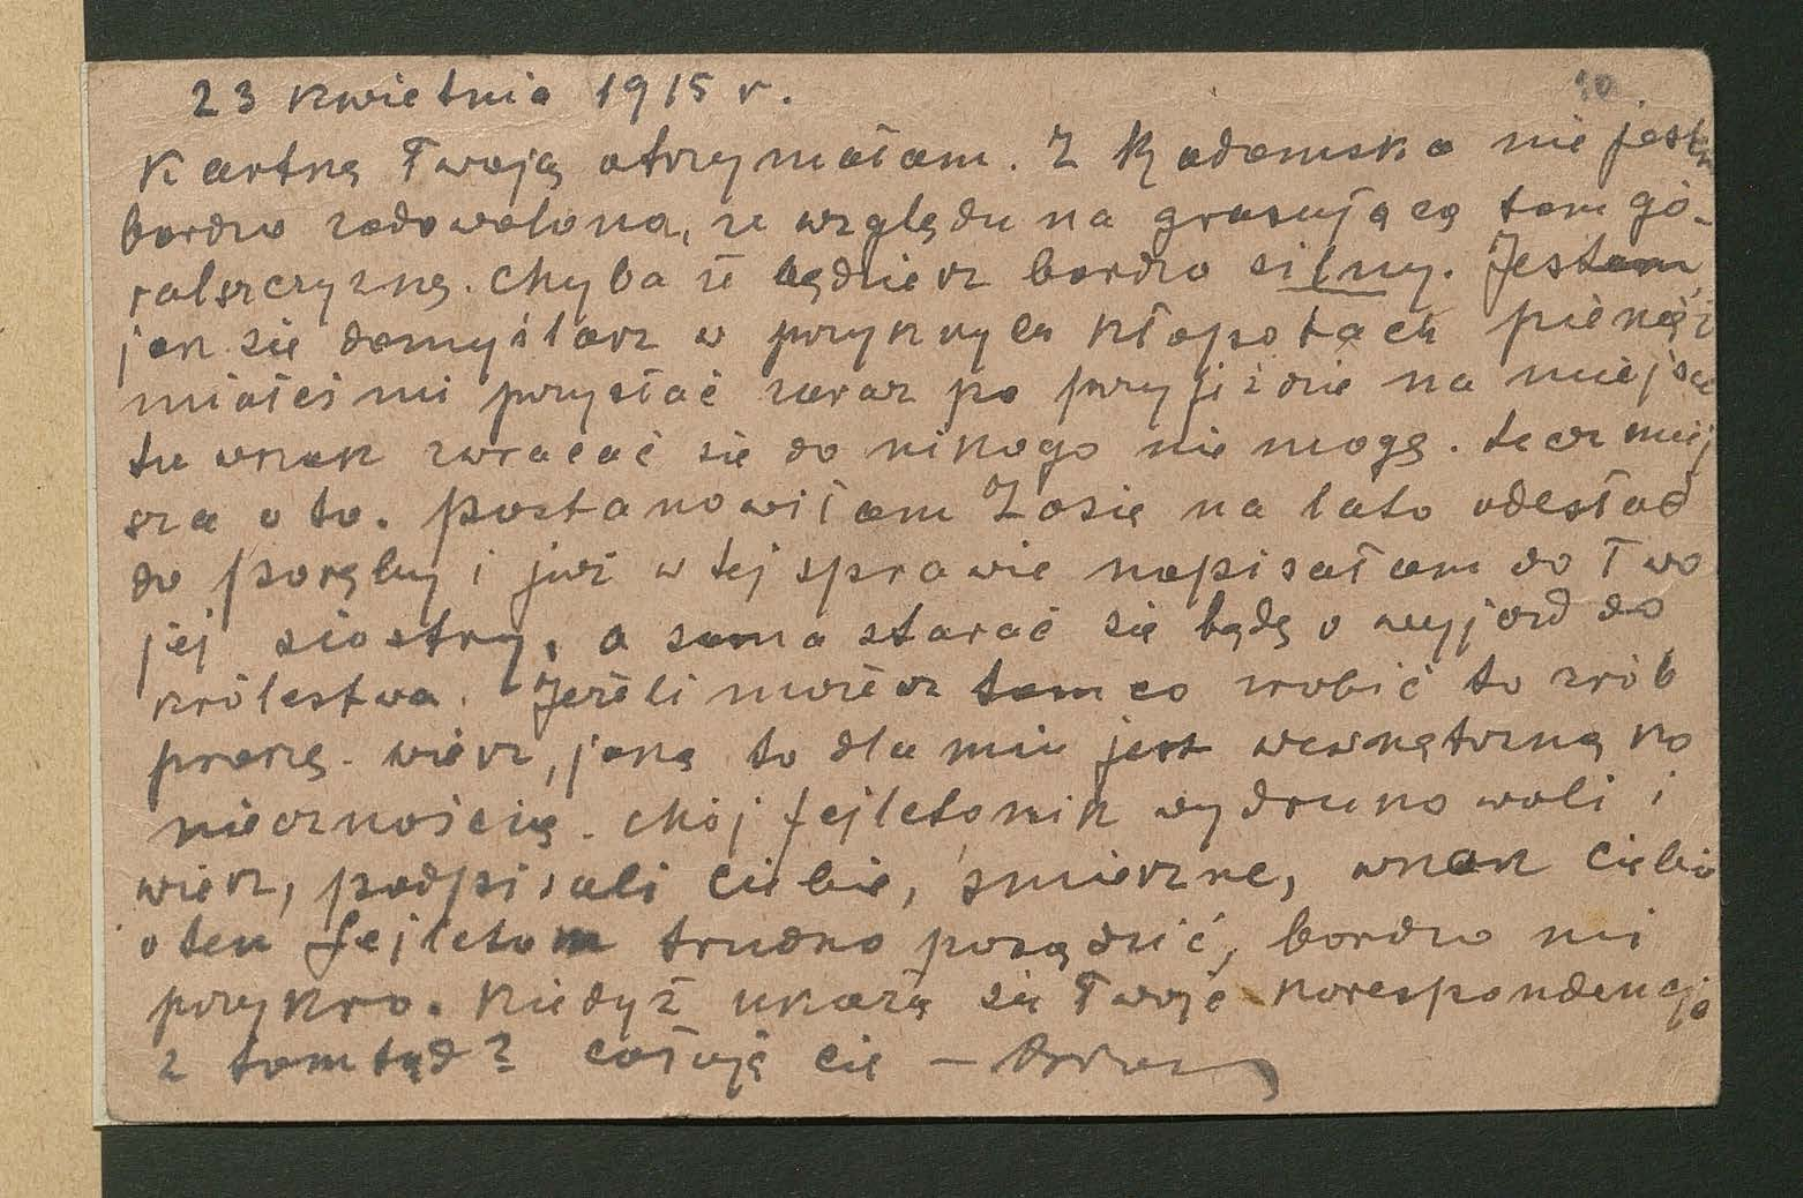 10
23 kwietnia 1915 r.
Kartkę Twoją otrzymałam. Z Radomska nie jestem
bardzo zadowolona, ze względu na grasującą tam gó-
ralszczyznę. Chyba że będziesz bardzo silny. Jestem,
jak się domyślasz w przykrych kłopotach pienięż
miałeś mi przysłać zaraz po przyjeździe na miejsce
tu wszak zwracać się do nikogo nie mogę.
sza o to. Postanowiłam Zosię na lato odesłać
do Poręby i już w tej sprawie napisałam do Two
jej siostry, a sama starać się będę o wyjazd do
Królestwa. Jeżeli możesz tam co zrobić to zrób
proszę. Wiesz, jaką to dla mnie jest wewnętrzną ko
niecznością. Mój fejletonik wydrukowali i
wiesz, podpisali Ciebie, śmieszne, wszak Ciebie
o ten fejleton trudno posądzić, bardzo mi
przykro. Kiedyż ukażą się Twoje korespondencje
z tamtąd? Całuję Cię —